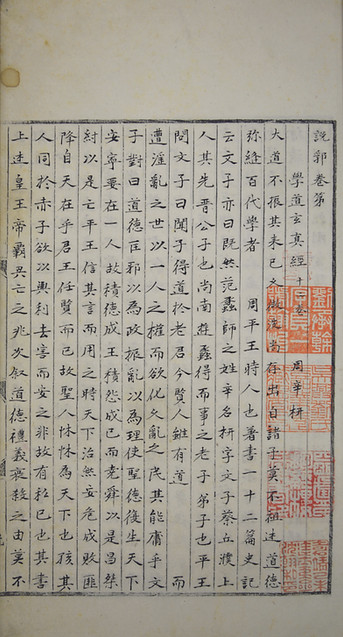 說郛卷第
學道玄真經 十二卷 周辛姸
大道不振其来已文微波尚存出自諸子莫不祖述道德
弥縫百代學者 周平王時人也著書一十二篇史記
云文子亦曰既然范蠡師之姓辛名姸字文子蔡丘濮上
人其先晉公子也尚南遊蠡得而事之老子弟子也平王
問文子曰聞子得道於老君今賢人雖有道 而
遭滛亂之世以一人之權而欲化久亂之民其能庸乎文
子對曰道德匡邪以為政振亂以為理使聖德復生天下
安寧要在一人故積德成王積怨成亡而堯舜以是昌桀
紂以是亡平王信其言而用之時天下治然安危成敗匪
降自天在乎君王任賢而已故聖人怵怵為天下也孩其
人同於赤子欲以興利去害而安之非故有私已也其書
上述皇王帝霸興亡之兆次叙道德禮義襃殺之由莫不